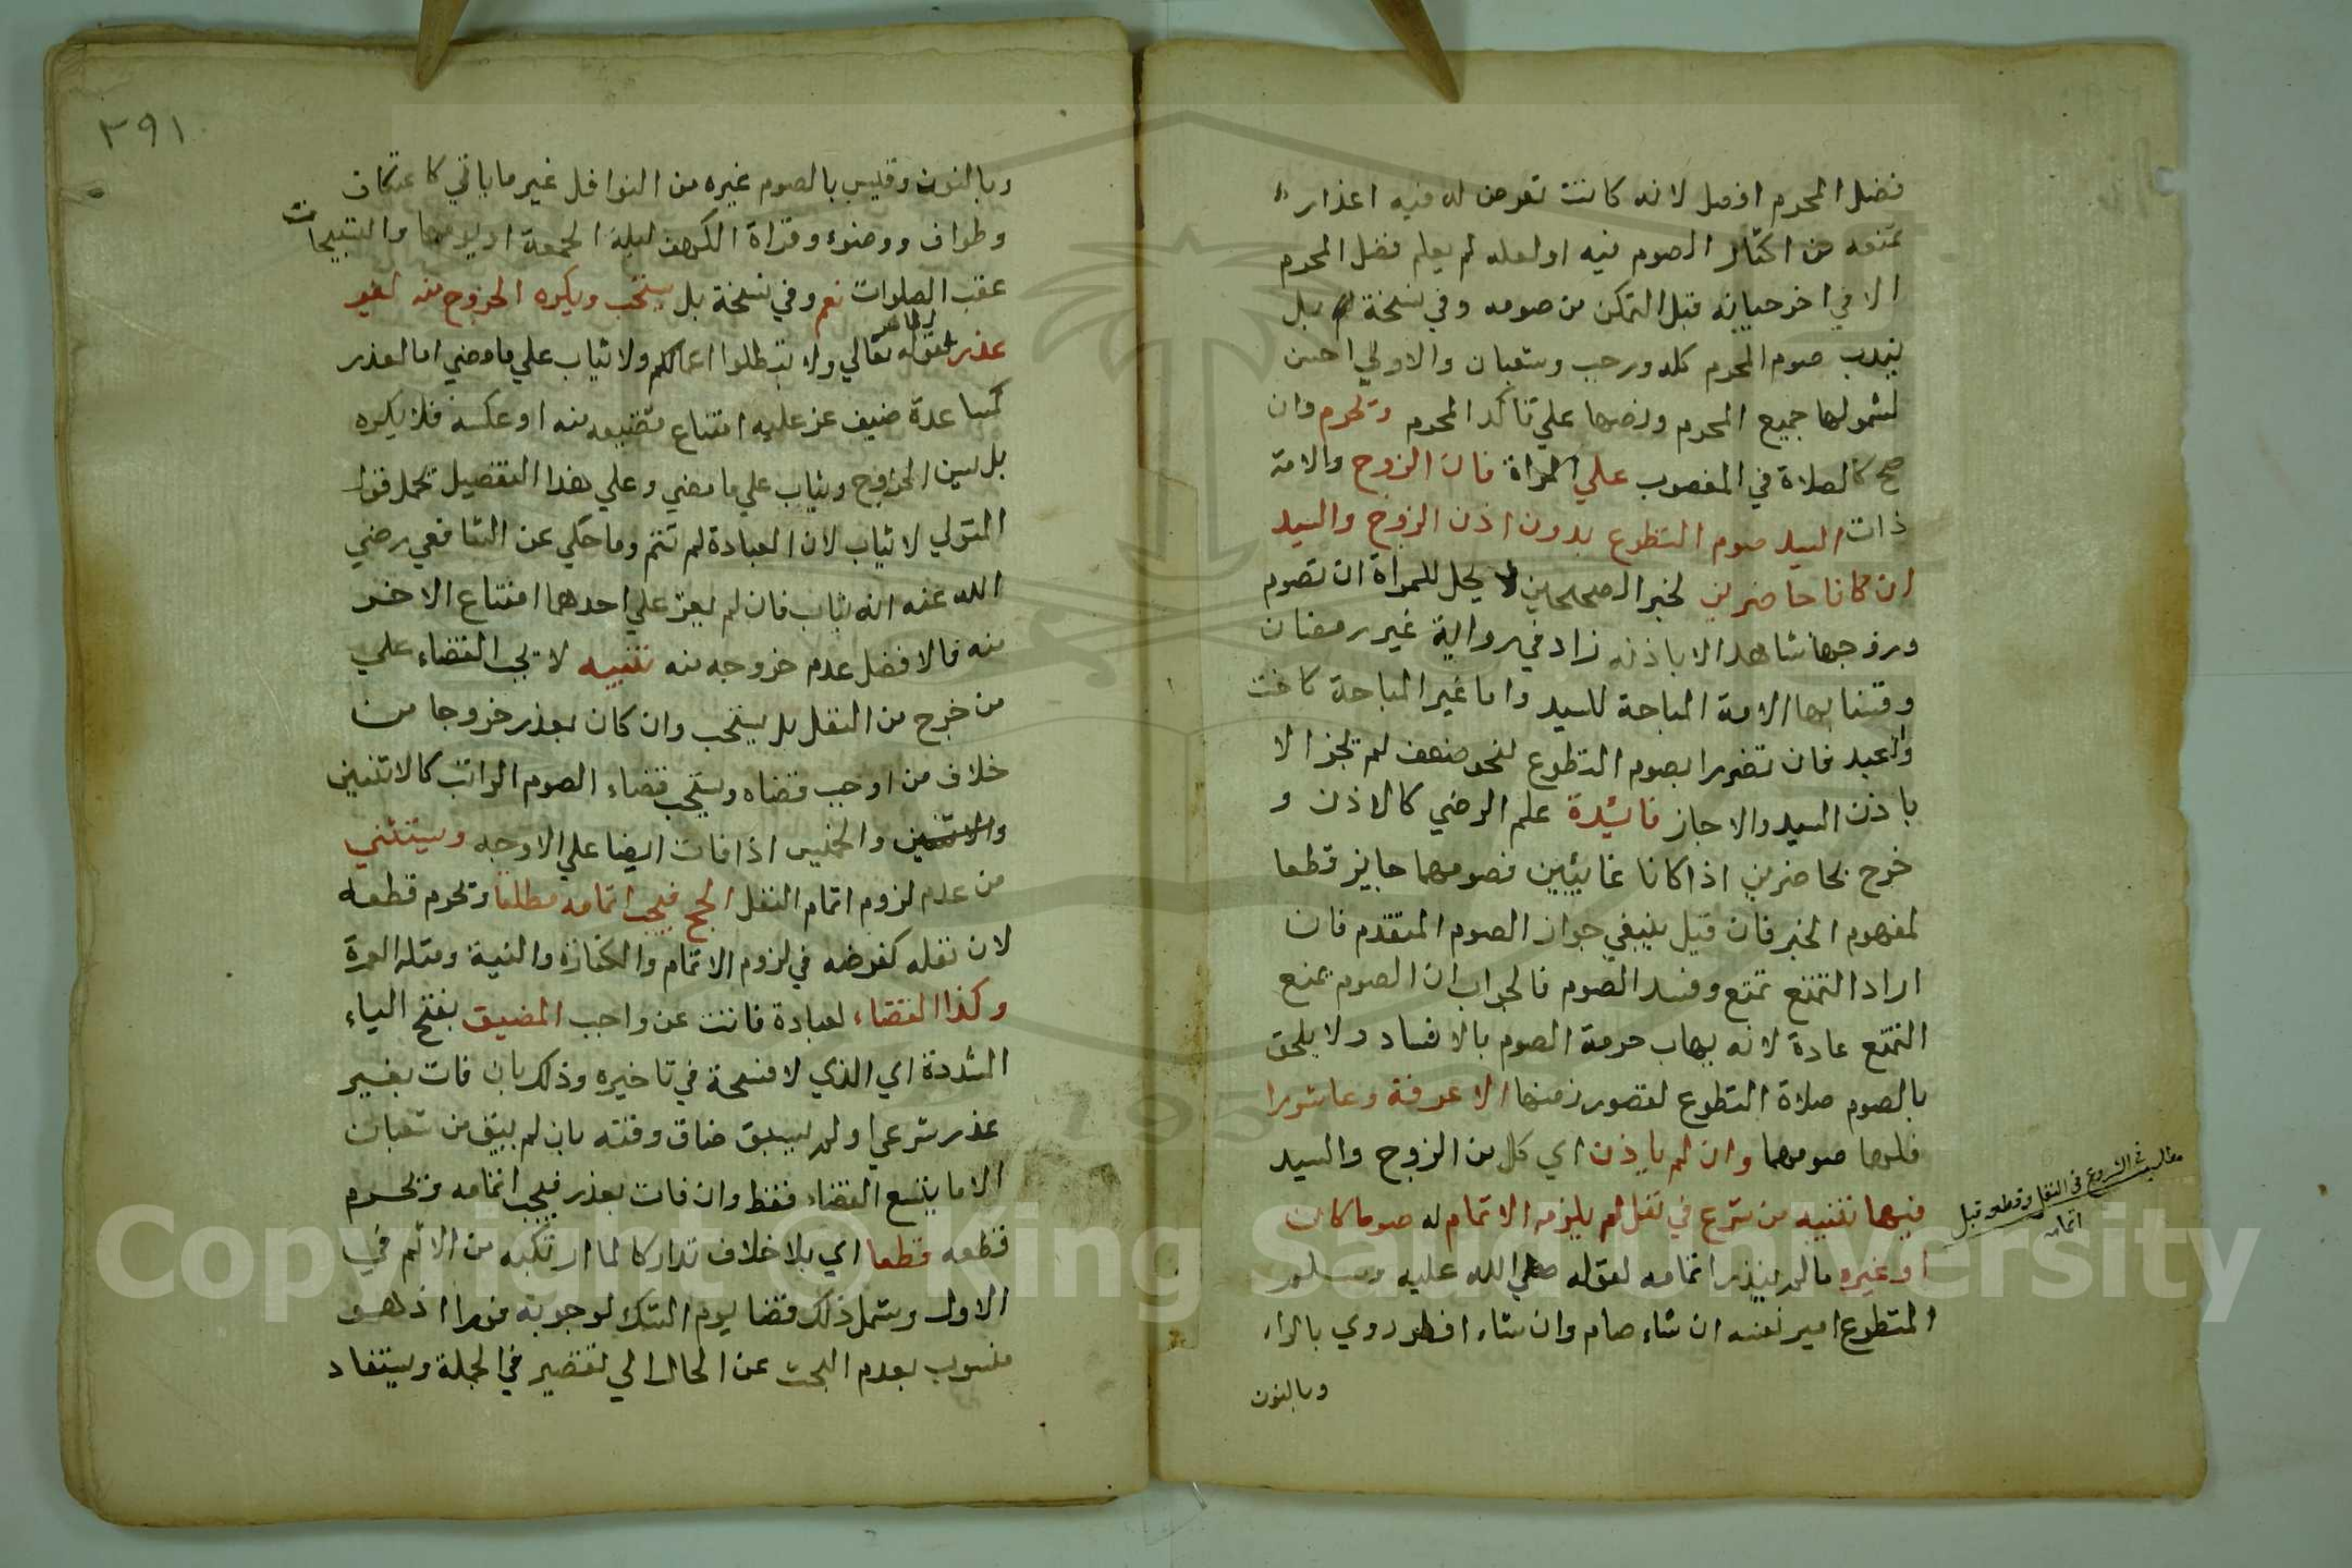 فضل المحرم افضل لانه كانت تعرض له فيه اعذار
تمنعه من اكثار الصوم فيه او لعله لم يعلم فضل المحرم
الا في اخر حياته قبل التمكن من صومه وفي نسخة بل
يندب صوم المحرم كله ورجب وشعبان والاولي احسن
لشمولها جميع المحرم ونصها علي تاكد المحرم وتحرم وان
صح كالصلاة في المغصوب علي المراة ذات الزوج والامة
ذات السيد صوم التطوع بدون اذن الزوج والسيد
ان كانا حاضرين لخبر الصحيحين لا يحل للمراة ان تصوم
وزوجها شاهد الا باذنه زاد في رواية غير رمضان
وقسنا بها الامة المباحة للسيد واما غير المباحة كاخت
والعبد فان تضررا بصوم التطوع لنحو ضعف لم تجز الا
باذن السيد والا جاز فائدة علم الرضي كالاذن و
خرج بحاضرين اذا كانا غائبين فصومهما جايز قطعا
لمفهوم الخبر فان قيل ينبغي جواز الصوم المتقدم فان
اراد التمتع تمتع وفسد الصوم فالجواب ان الصوم يمنع
التمتع عادة لانه يهاب حرمة الصوم بالافساد ولا يلحق
بالصوم صلاة التطوع لقصور زمنها الا عرفة وعاشورا
فلهما صومهما وان لم ياذن اي كل من الزوج والسيد
فيهما تنبيه من شرع في نفل لم يلزمه الاتمام له صوما كان
او غيره ما لم ينذر اتمامه لقوله صلي الله عليه وسلم
المتطوع امير نفسه ان شاء صام وان شاء افطر روي بالراء
وبالنون
مطلب في الشروع في النفل وقطعه قبل
اتمامه
٣٩١
وبالنون وقيس بالصوم غيره من النوافل غير ما ياتي كاعتكاف
وطواف ووضوء وقراة الكهف ليلة الجمعة او يومها والتسبيحات
عقب الصلوات نعم وفي نسخة بل يستحب ويكره الخروج منه لغير
عذر لظاهر قوله تعالي ولا تبطلوا اعمالكم ولا يثاب علي ما مضي اما العذر
كمساعدة ضيف عز عليه امتناع مضيفه منه او عكسه فلا يكره
بل يسن الخروج ويثاب علي ما مضي وعلي هذا التفصيل تحمل قول
المتولي لا يثاب لان العبادة لم تتم وما حكي عن الشافعي رضي
الله عنه انه يثاب فان لم يعز علي احدهما امتناع الاخر
منه فالافضل عدم خروجه منه تنبيه لا يجب القضاء علي
من خرج من النفل بل يستحب وان كان بعذر خروجا من
خلاف من اوجب قضاه ويستحب قضاء الصوم الراتب كالاثنين
والاثنين والخميس اذا فات ايضا علي الاوجه ويستثني
من عدم لزوم اتمام النفل الحج فيجب اتمامه مطلقا وتحرم قطعه
لان نفله كفرضه في لزوم الاتمام والكفارة والنية ومثله العمرة
وكذا القضاء لعبادة فاتت عن واجب المضيق بفتح الياء
المشددة اي الذي لا فسحة في تاخيره وذلك بان فات بغير
عذر شرعي او لم يسبق ضاق وقته بان لم يبق من شعبان
الا ما يسع القضاء فقط وان فات بعذر فيجب اتمامه وتحرم
قطعه قطعا اي بلا خلاف تداركا لما ارتكبه من الاثم في
الاول ويشمل ذلك قضا يوم الشك لوجوبه فورا اذ هو
منسوب بعدم البحث عن الحال الي تقصير في الجملة ويستفاد
Copyright © King Saud University
1957